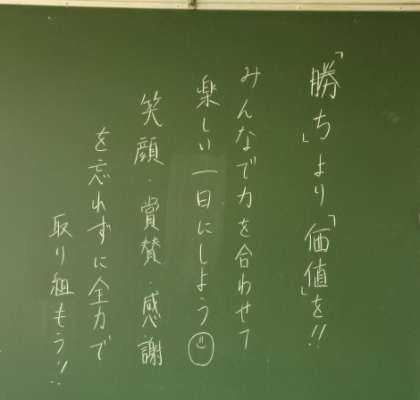 「勝ち」より「価値」を!!
みんなで力を合わせて
楽しい一日にしよう
笑顔・賞賛・感謝
を忘れずに全力で
取り組もう!!